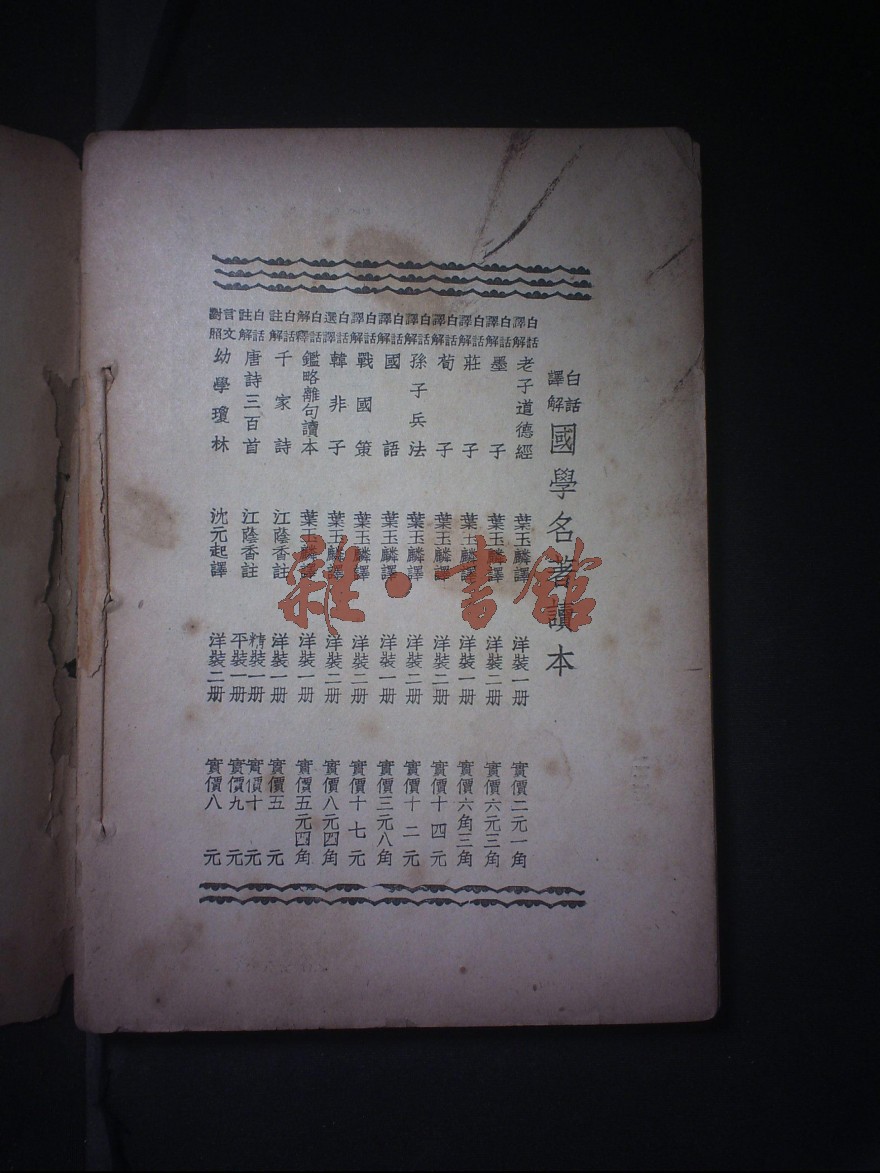 白話譯解 國學名著讀本
白話譯解 老子道德經 葉玉麟譯 洋裝一册 實價二元一角
白話譯解 墨子 葉玉麟譯 洋裝二册 實價六元三角
白話譯解 莊子 葉玉麟譯 洋裝一册 實價六角三角
白話譯解 荀子 葉玉麟譯 洋裝二册 實價十四元
白話譯解 孫子兵法 葉玉麟譯 洋裝二册 實價十二元
白話譯解 國語 葉玉麟譯 洋裝一册 實價三元八角
白話譯解 戰國策 葉玉麟譯 洋裝二册 實價十七元
白話選譯 韓非子 葉玉麟譯 洋裝二册 實價八元四角
白話解釋 鑑略離句讀本 葉玉麟譯 洋裝一册 實價五元四角
白話註解 千家詩 江蔭香註 洋裝一册 實價五元
白話註解 唐詩三百首 江蔭香註 精裝一册 實價十元
平裝一册 實價九元
言文對照 幼學瓊林 沈元起譯 洋裝二册 實價八元
雜·書館